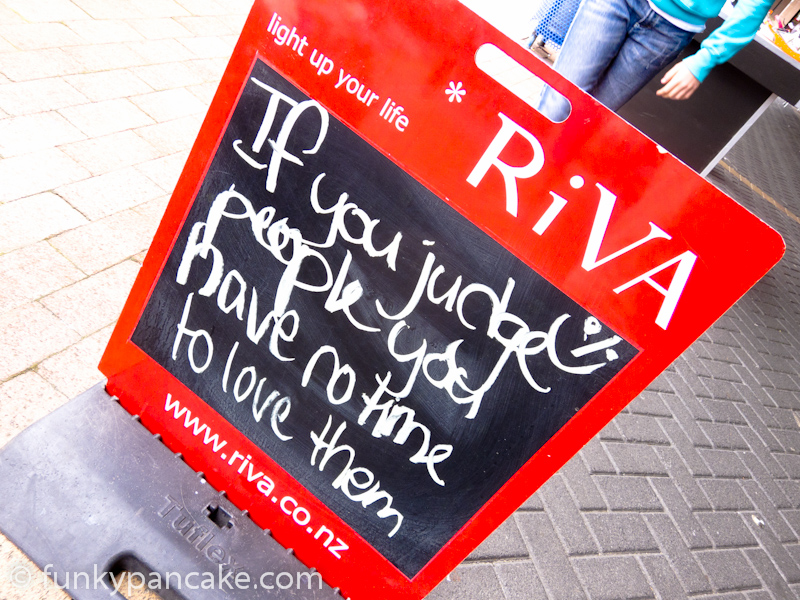 light up your life
* RiVA
If you judge
people you
have no time
to love them
www.riva.co.nz
Tuflex
© funkypancake.com